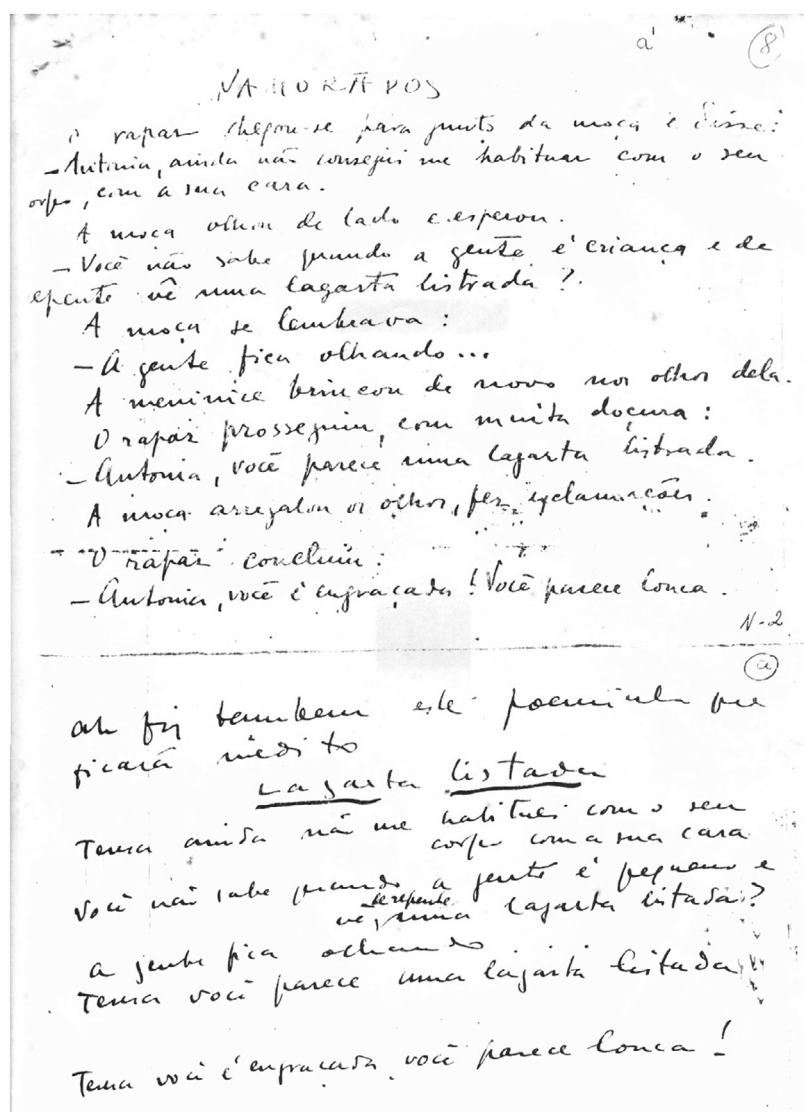 a'
8
NAMORADOS
O rapaz chegou-se para junto da moça e disse:
— Antonia, ainda não consegui me habituar com o seu
orpo, com a sua cara.
A moça olhou de lado e esperou.
— Você não sabe quando a gente é criança e de
epente vê uma lagarta listrada?
A moça se lembrava:
— A gente fica olhando...
A meninice brincou de novo nos olhos dela.
O rapaz prosseguiu, com muita doçura:
— Antonia, você parece uma lagarta listrada.
A moça arregalou os olhos, fez exclamações.
O rapaz concluiu:
— Antonia, você é engraçada! Você parece louca.
N-2
a
ah fiz tambem este poeminha que
ficará inédito
Lagarta listada
Tema ainda não me habituei com o seu
corpo com a sua cara
Você não sabe quando a gente é pequeno e
de repente
vê uma lagarta listada?
a gente fica olhando
Tema você parece uma lagarta listada
Tema você é engraçada você parece louca!